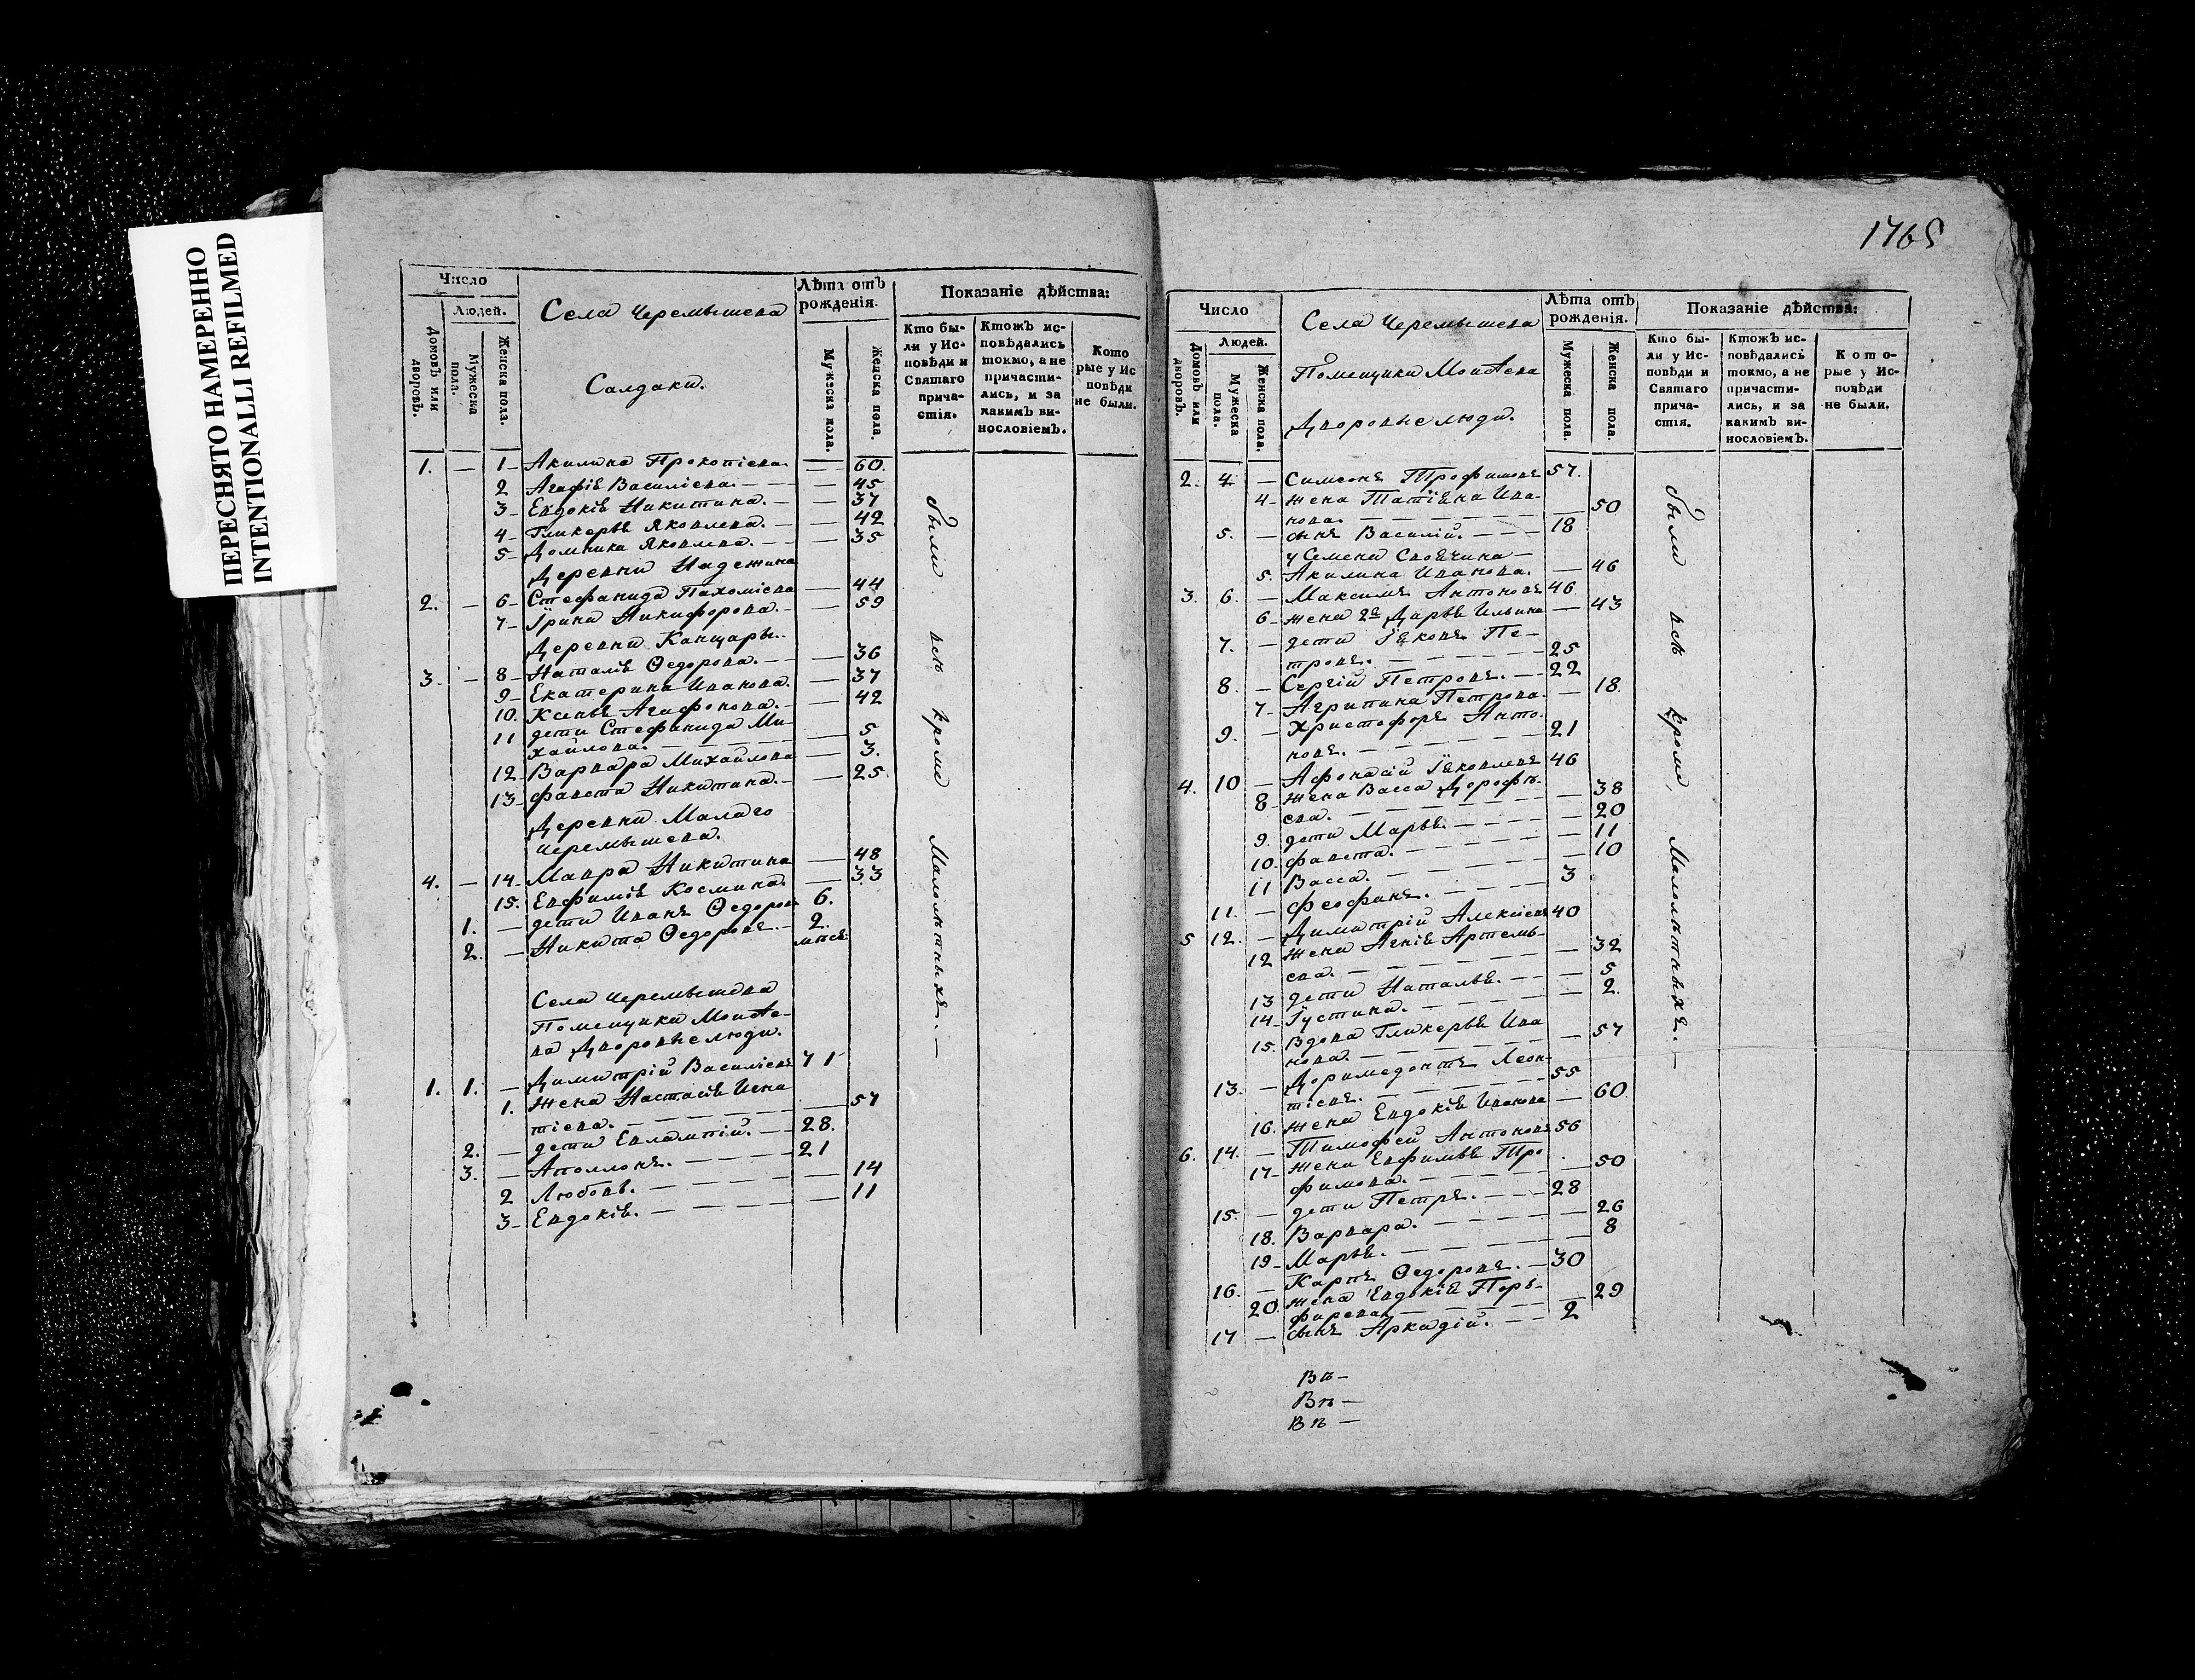 ПЕРЕСНЯТО НАМЕРЕННО
INTENTIONALLI REFILMED
Число
Людей.
Домовъ или дворовъ.
Мужеска пола.
Женска пола.
Села Черемышева
Салдаки.
Лѣта отъ рожденія.
Мужеска пола.
Женска пола.
Показаніе дѣйства:
Кто бы-
ли у Ис-
повѣди и
Святаго
прича-
стія.
Ктожъ ис-
повѣдались
токмо, а не
причасти-
лись, и за
какимъ ви-
нословіемъ.
Кото
рые у Ис
повѣди
не были.
1. — 1 Акилина Прокопіева — 60.
2 Агафія Василіева. — — 45
3 Евдокія Никитина. — — 37
4 Гликерья Яковлева. — — 42
5 Домника Яковлева. — — 35
Деревни Надежина
2. — 6 Стефанида Пахоміева — 44
7 Ірина Никифорова. — 59
Деревни Канщары.
3 — 8 Наталія Ѳедорова. — — 36
9 Екатерина Иванова. — 37
10. Ксенья Агафонова. — — 42
11 дети Стефанида Ми-
хайлова. — — 5
12 Варвара Михайлова — 3.
13 Фавста Никитина. — — 25
Деревни Малаго
Черемышева.
4. — 14 Мавра Никитина — 48
15. Евфимія Космина. — 33
1. — дети Иванъ Ѳедоров 6.
2. — Никита Ѳедоровъ. — 2.
мѣсе
Села Черемышева
Помещика Моисѣе-
ва Дворовые люди.
1. 1. — Димитрій Василіевъ 71
1. Жена Настасія Игна
тіева. — 57
2. — дети Евлампій. — 28.
3. — Аполлонъ. — 21
2 Любовь. — 14
3 Евдокія. — 11
были всѣ кроме Малолѣтныхъ. —
1765
Число
Людей.
Домовъ или дворовъ.
Мужеска пола.
Женска пола.
Села Черемышева
Помещика Моисѣева
Дворовые люди.
Лѣта отъ рожденія.
Мужеска пола.
Женска пола.
Показаніе дѣйства:
Кто бы-
ли у Ис-
повѣди и
Святаго
прича-
стія.
Ктожъ ис-
повѣдались
токмо, а не
причасти-
лись, и за
какимъ ви-
нословіемъ.
Кото-
рые у Ис-
повѣди
не были.
2. 4 — Симеонъ Трофимовъ 57.
4 Жена Татіяна Ива-
нова. — 50
5. — сынъ Василій. — 18
у Семена Своячина —
5. Акилина Иванова. — 46
3. 6. — Максимъ Антоновъ 46
6 жена 2я Дарья Ильина — 43
7. — дети Іяковъ Пе-
тровъ. — 25
8. — Сергій Петровъ. — 22
7 Агрипина Петрова. — 18.
9. — Христофоръ Анто-
новъ. — 21
4. 10 — Афонасій Іяковлевъ 46
8 Жена Васса Дорофѣ-
ева. — 38
9. дети Марья. — 20
10. Фавста. — 11
11 Васса. — 10
11. — Феофанъ. — 3
5 12. — Димитрій Алексіевъ 40
12 Жена Агнія Артемь-
ева. — 32
13 дети Наталья. — 5
14 Іустина. — 2.
15. Вдова Гликерья Ива
нова. — 57
13. — Доримедонтъ Леон-
тіевъ. — 55
16. Жена Евдокія Иванова — 60.
6. 14. — Тимофей Антоновъ 56
17 Жена Евфимья Тро
фимова. — 50
15. — дети Петръ. — 28
18. Варвара. — 26
19 Марья. — 8
16. — Карпъ Ѳедоровъ. — 30
20. Жена Евдокія Порѳ-
фирева. — 29
17 — сынъ Аркадій. — 2
были всѣ кроме Малолѣтныхъ. —
Въ —
Въ —
Въ —